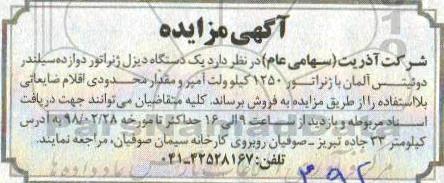 آگهی مزایده
شرکت آذریت (سهامی عام) در نظر دارد یک دستگاه دیزل ژنراتور دوازده سیلندر
دوئیتس آلمان با ژنراتور ۱۲۵۰ کیلو ولت آمپر و مقدار محدودی اقلام ضایعاتی
بلااستفاده را از طریق مزایده به فروش برساند. کلیه متقاضیان می توانند جهت دریافت
اسناد مربوطه و بازدید از ساعت ۹ الی ۱۶ حداکثر تا مورخه ۹۸/۰۲/۲۸ به آدرس
کیلومتر ۳۳ جاده تبریز - صوفیان روبروی کارخانه سیمان صوفیان، مراجعه نمایند.
تلفن: ۴۲۵۲۸۱۶۷-۰۴۱